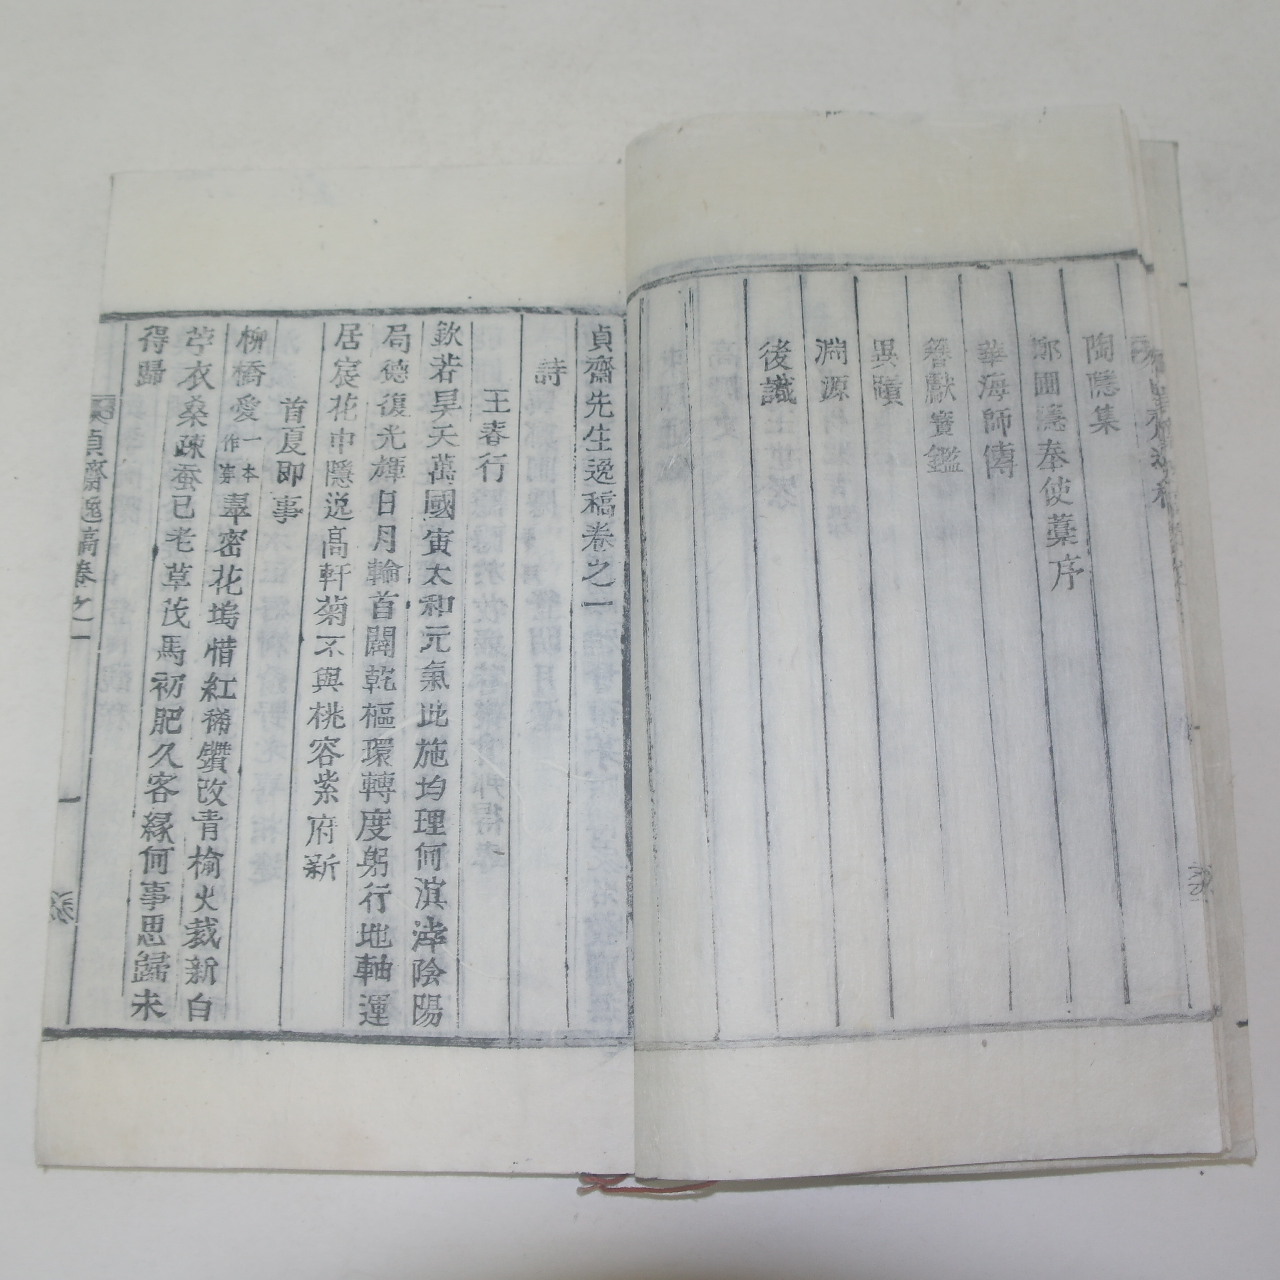 陶隱集
鄭圃隱奉使藁序
華海師傳
簪獻寶鑑
異蹟
淵源
後識
貞齋先生逸稿卷之一
詩
王春行
欽若昊天萬國寅太和元氣此施均理何滇涬陰陽
局德復光輝日月輪首闢乾樞環轉度躬行地軸運
居宸花中隱逸高軒菊不與桃容紫府新
首夏即事
柳橋愛一本作穿翠密花塢惜紅稀鑽改青楡火裁新白
苧衣桑疎蚕已老草茂馬初肥久客緣何事思歸未
得歸
貞齋逸稿卷之一
一